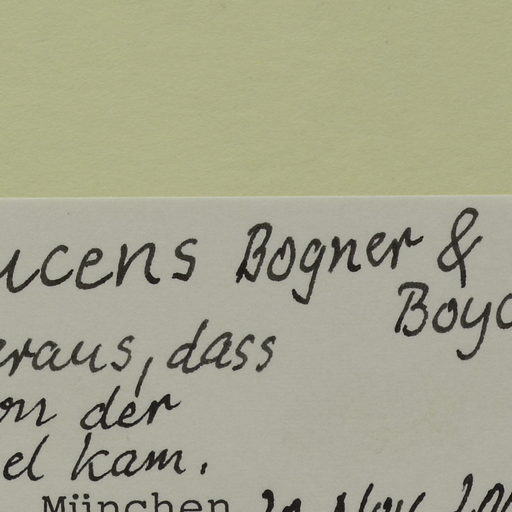 ucens Bogner &
Boyd
eraus, dass
on der
el kam.
München Nov